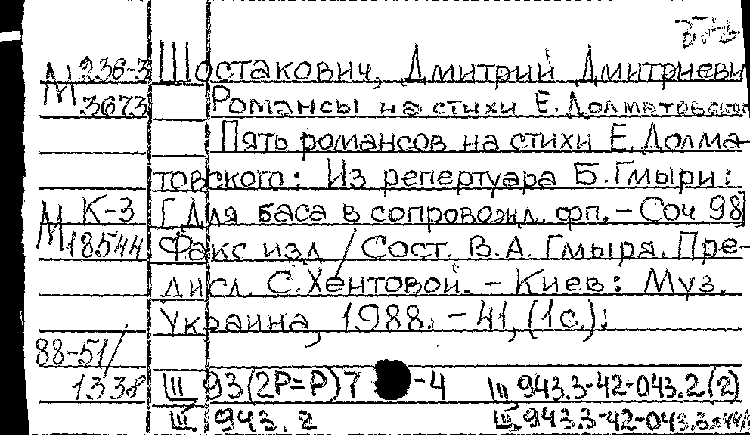 М 236-3 Шостакович, Дмитрий Дмитриеви
3673 Романсы на стихи Е. Долматовско
Пять романсов на стихи Е. Долма-
товского: Из репертуара Б. Гмыри:
М К-3 [Для баса в сопровожд. фп. – Соч 98]
18544 Факс изд / Сост. В.А. Гмыря. Пре-
дисл. С. Хентовой. – Киев: Муз.
Украина, 1988. – 41, (1с.):
88-51/
1338 Ш 93(2Р=Р)7 -4 Ш 943.3-42-043.2(2)
Ш 943.2 Ш 943.3-42-043.3